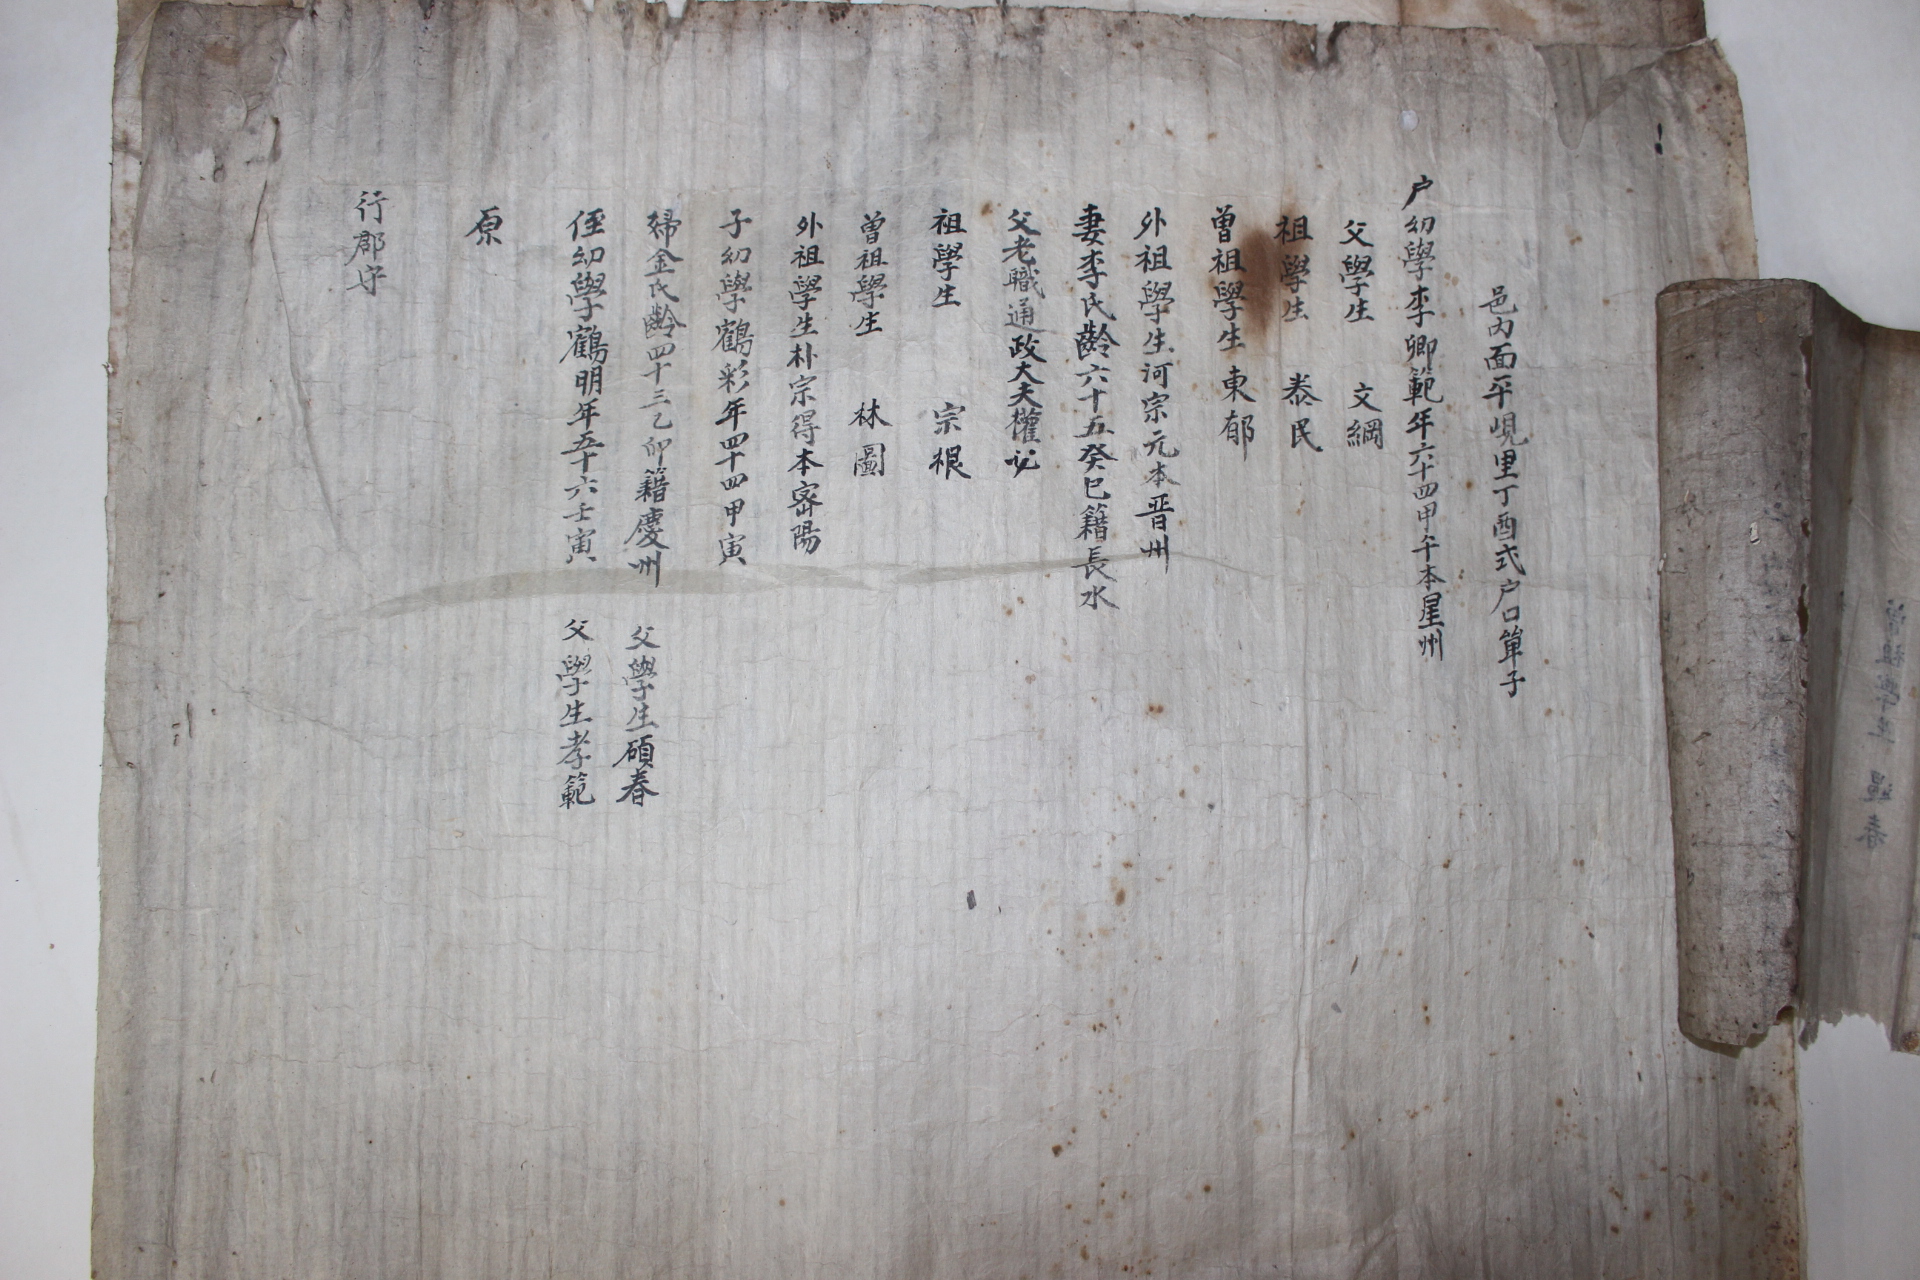 邑内面平峴里丁酉式户口單子
户幼學李卿範年六十四甲午本星州
父學生 文綱
祖學生 泰民
曾祖學生 東郁
外祖學生河宗元本晋州
妻李氏齡六十五癸巳籍長水
父老職通政大夫權
祖學生 宗根
曾祖學生 林圖
外祖學生朴宗得本密陽
子幼學鶴彩年四十四甲寅
婦金氏齡四十三乙卯籍慶州 父學生碩春
侄幼學鶴明年五十六壬寅 父學生孝範
原
行郡守
曾祖學生 春